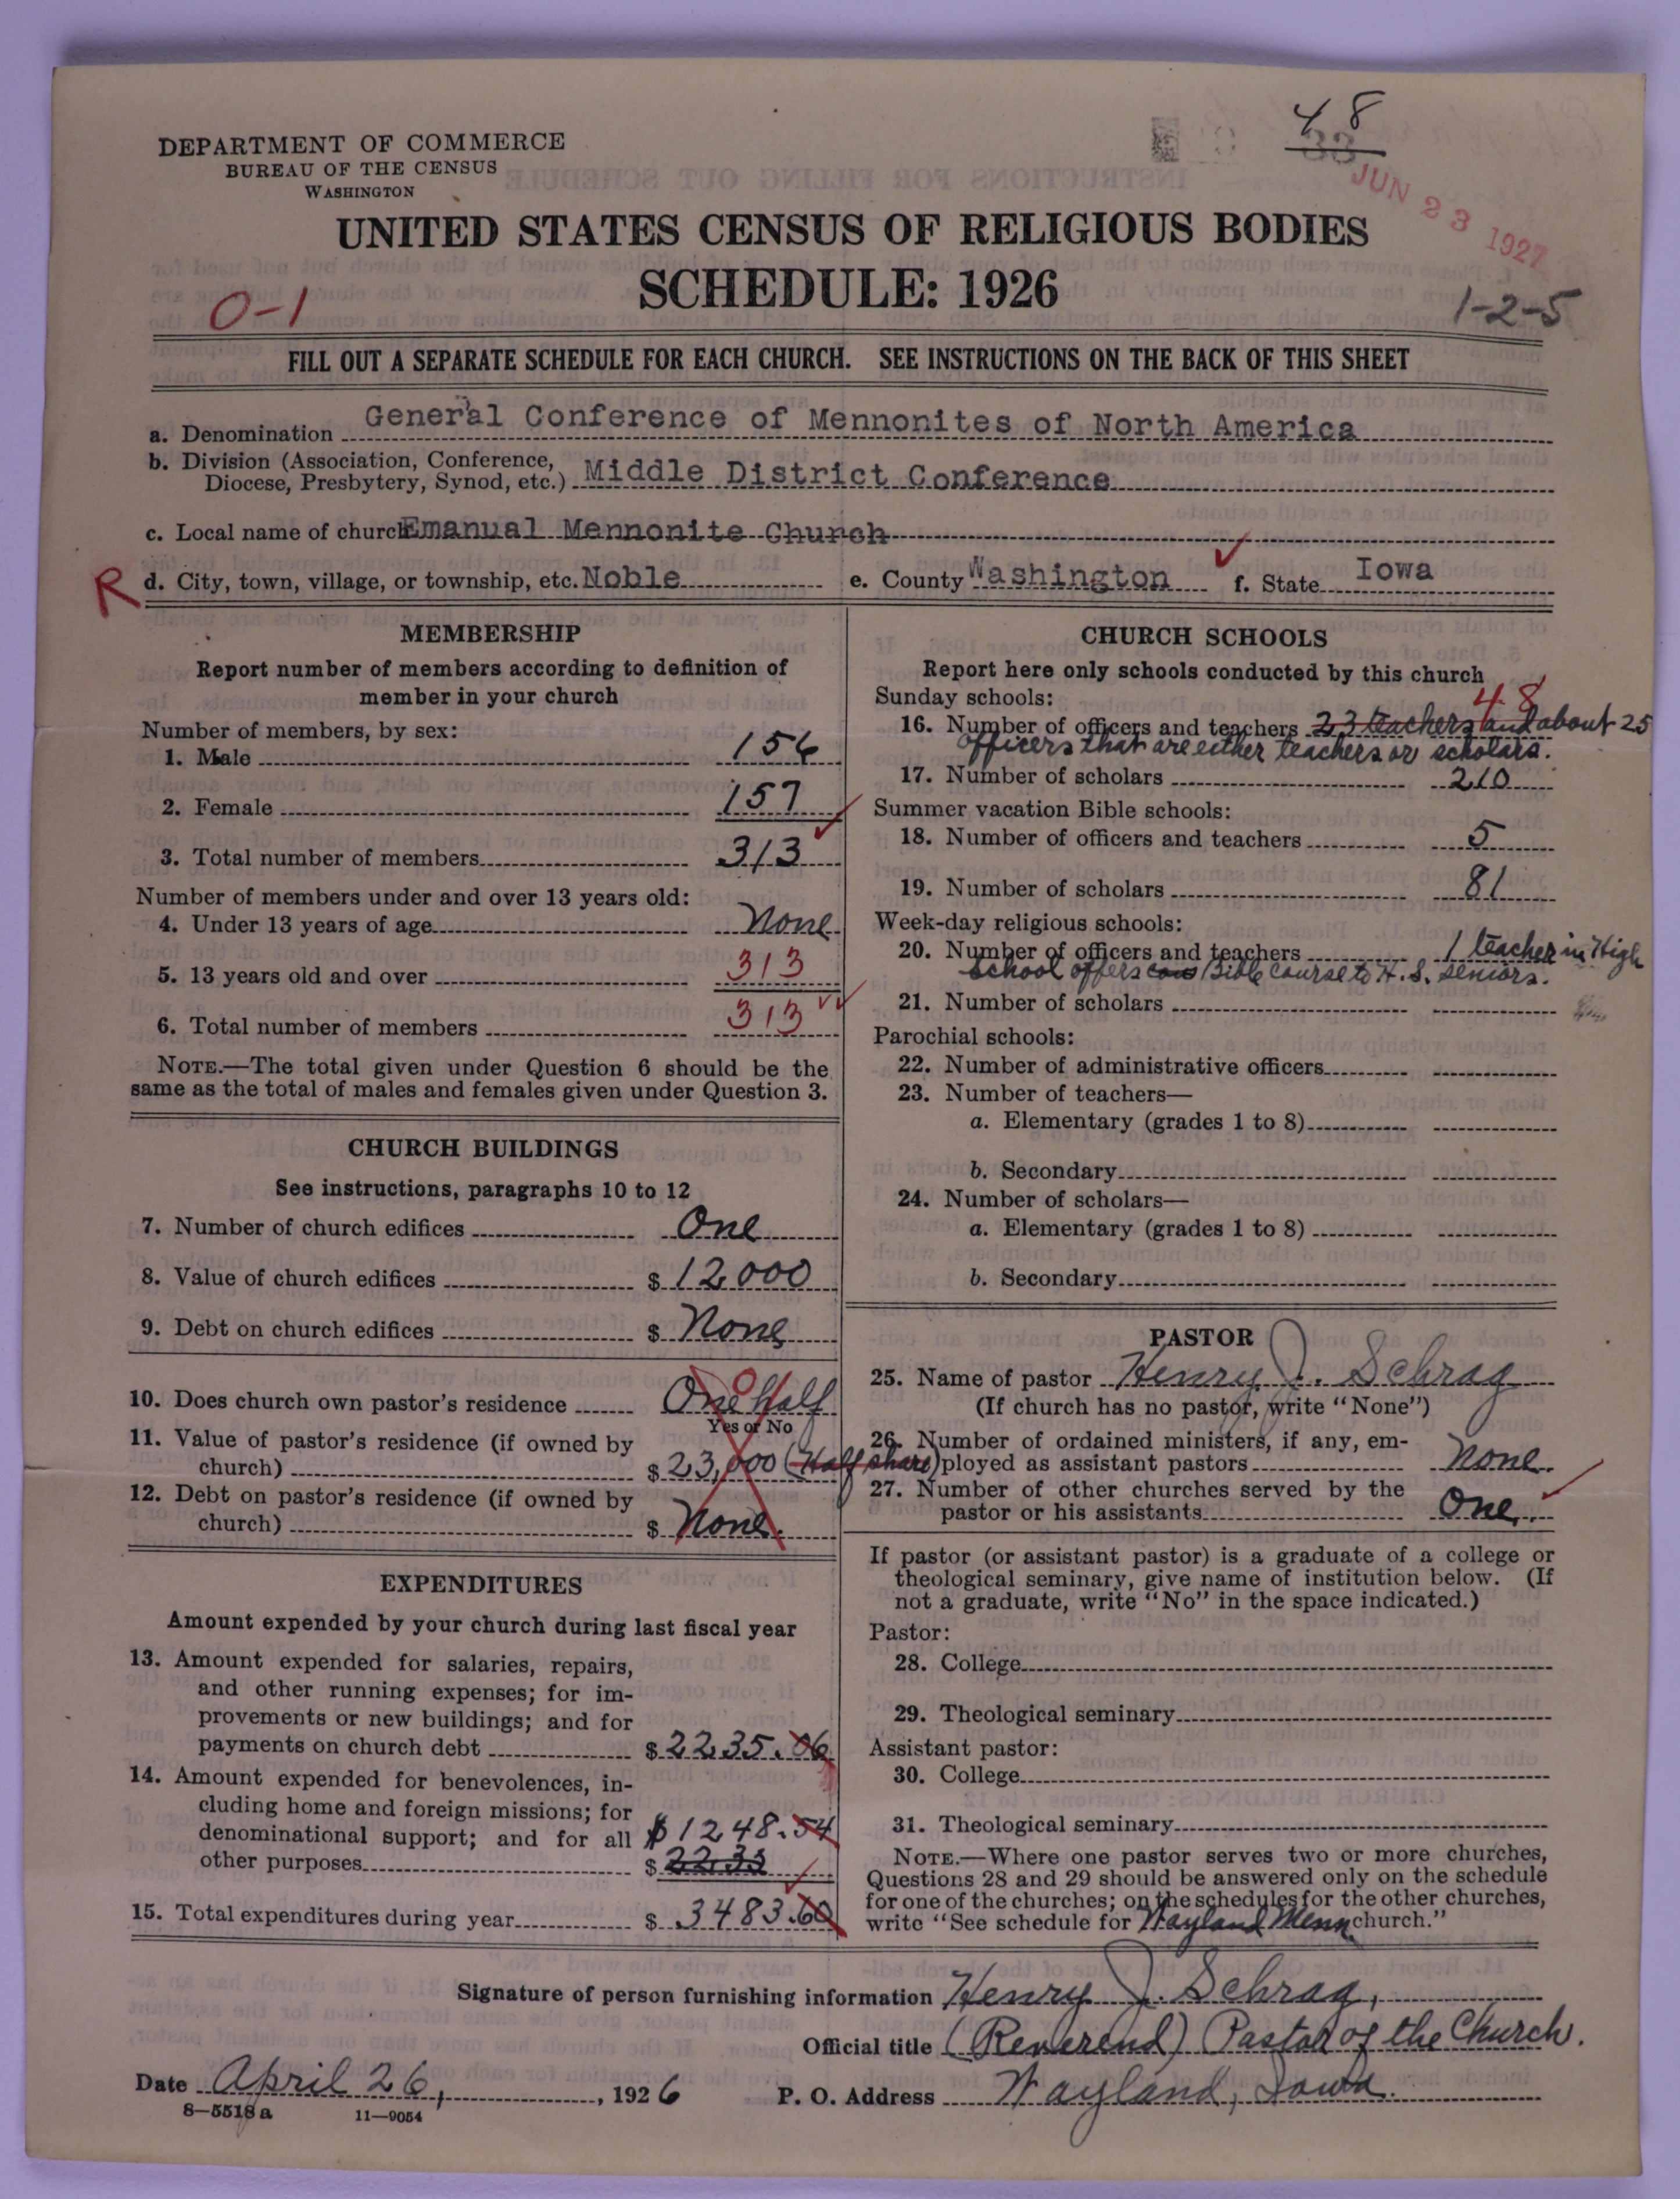 48
33
JUN 23 1927
DEPARTMENT OF COMMERCE
BUREAU OF THE CENSUS
WASHINGTON
UNITED STATES CENSUS OF RELIGIOUS BODIES
SCHEDULE: 1926
0-1
1-2-5
FILL OUT A SEPARATE SCHEDULE FOR EACH CHURCH. SEE INSTRUCTIONS ON THE BACK OF THIS SHEET
a. Denomination General Conference of Mennonites of North America
b. Division (Association, Conference,
Diocese, Presbytery, Synod, etc.) Middle District Conference
c. Local name of church Emanual Mennonite Church
R d. City, town, village, or township, etc. Noble e. County Washington f. State Iowa
MEMBERSHIP
Report number of members according to definition of
member in your church
Number of members, by sex:
1. Male 156
2. Female 157
3. Total number of members 313
Number of members under and over 13 years old:
4. Under 13 years of age None
5. 13 years old and over 313
6. Total number of members 313
NOTE.—The total given under Question 6 should be the
same as the total of males and females given under Question 3.
CHURCH BUILDINGS
See instructions, paragraphs 10 to 12
7. Number of church edifices One
8. Value of church edifices $ 12000
9. Debt on church edifices $ None
10. Does church own pastor's residence One Half
Yes or No
11. Value of pastor's residence (if owned by
church) $ 23,000 (Half share)
12. Debt on pastor's residence (if owned by
church) $ None.
EXPENDITURES
Amount expended by your church during last fiscal year
13. Amount expended for salaries, repairs,
and other running expenses; for im-
provements or new buildings; and for
payments on church debt $ 2235.06
14. Amount expended for benevolences, in-
cluding home and foreign missions; for
denominational support; and for all $ 1248.54
other purposes $ 2235
15. Total expenditures during year $ 3483.60
CHURCH SCHOOLS
Report here only schools conducted by this church
Sunday schools: 48
16. Number of officers and teachers 23 teachers and about 25
officers that are either teachers or scholars.
17. Number of scholars 210
Summer vacation Bible schools:
18. Number of officers and teachers 5
19. Number of scholars 81
Week-day religious schools:
20. Number of officers and teachers 1 teacher in High
School offers Bible course to H. S. seniors.
21. Number of scholars
Parochial schools:
22. Number of administrative officers
23. Number of teachers—
a. Elementary (grades 1 to 8)
b. Secondary
24. Number of scholars—
a. Elementary (grades 1 to 8)
b. Secondary
PASTOR
25. Name of pastor Henry J. Schrag
(If church has no pastor, write "None")
26. Number of ordained ministers, if any, em-
ployed as assistant pastors None.
27. Number of other churches served by the
pastor or his assistants One.
If pastor (or assistant pastor) is a graduate of a college or
theological seminary, give name of institution below. (If
not a graduate, write "No" in the space indicated.)
Pastor:
28. College
29. Theological seminary
Assistant pastor:
30. College
31. Theological seminary
NOTE.—Where one pastor serves two or more churches,
Questions 28 and 29 should be answered only on the schedule
for one of the churches; on the schedules for the other churches,
write "See schedule for Wayland Menn. church."
Signature of person furnishing information Henry J. Schrag,
Official title (Reverend) Pastor of the Church.
Date April 26, 1926 P. O. Address Wayland, Iowa.
8—5518 a 11—9054